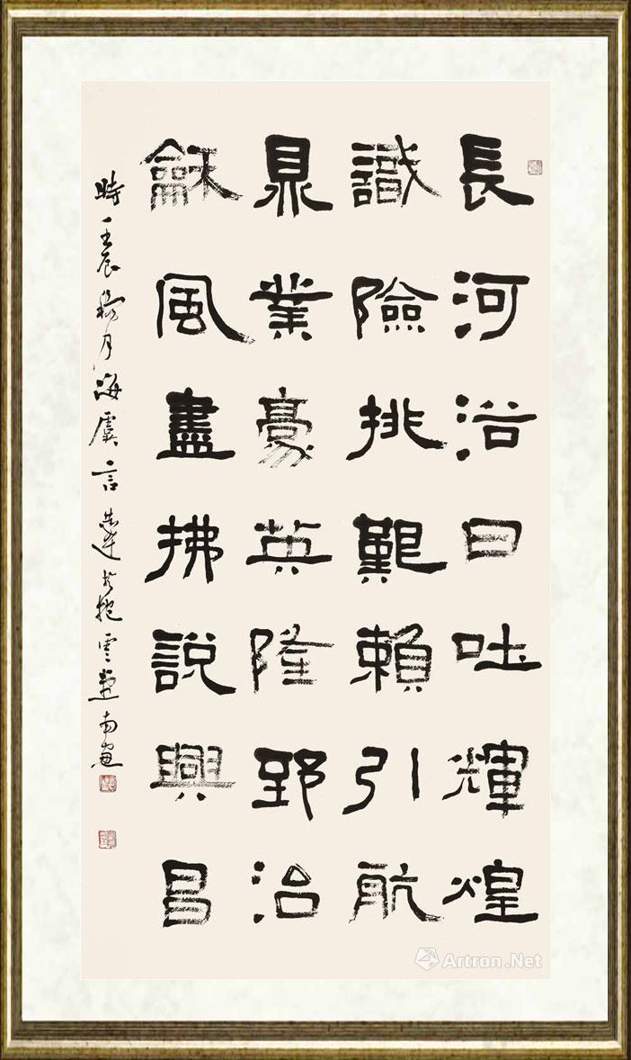 長河浴日吐輝煌
識險挑艱賴引航
鼎業豪英隆郅治
龢風盡拂說興昌
時壬辰 月海虞言達於抱雲 南窗
Artron.Net